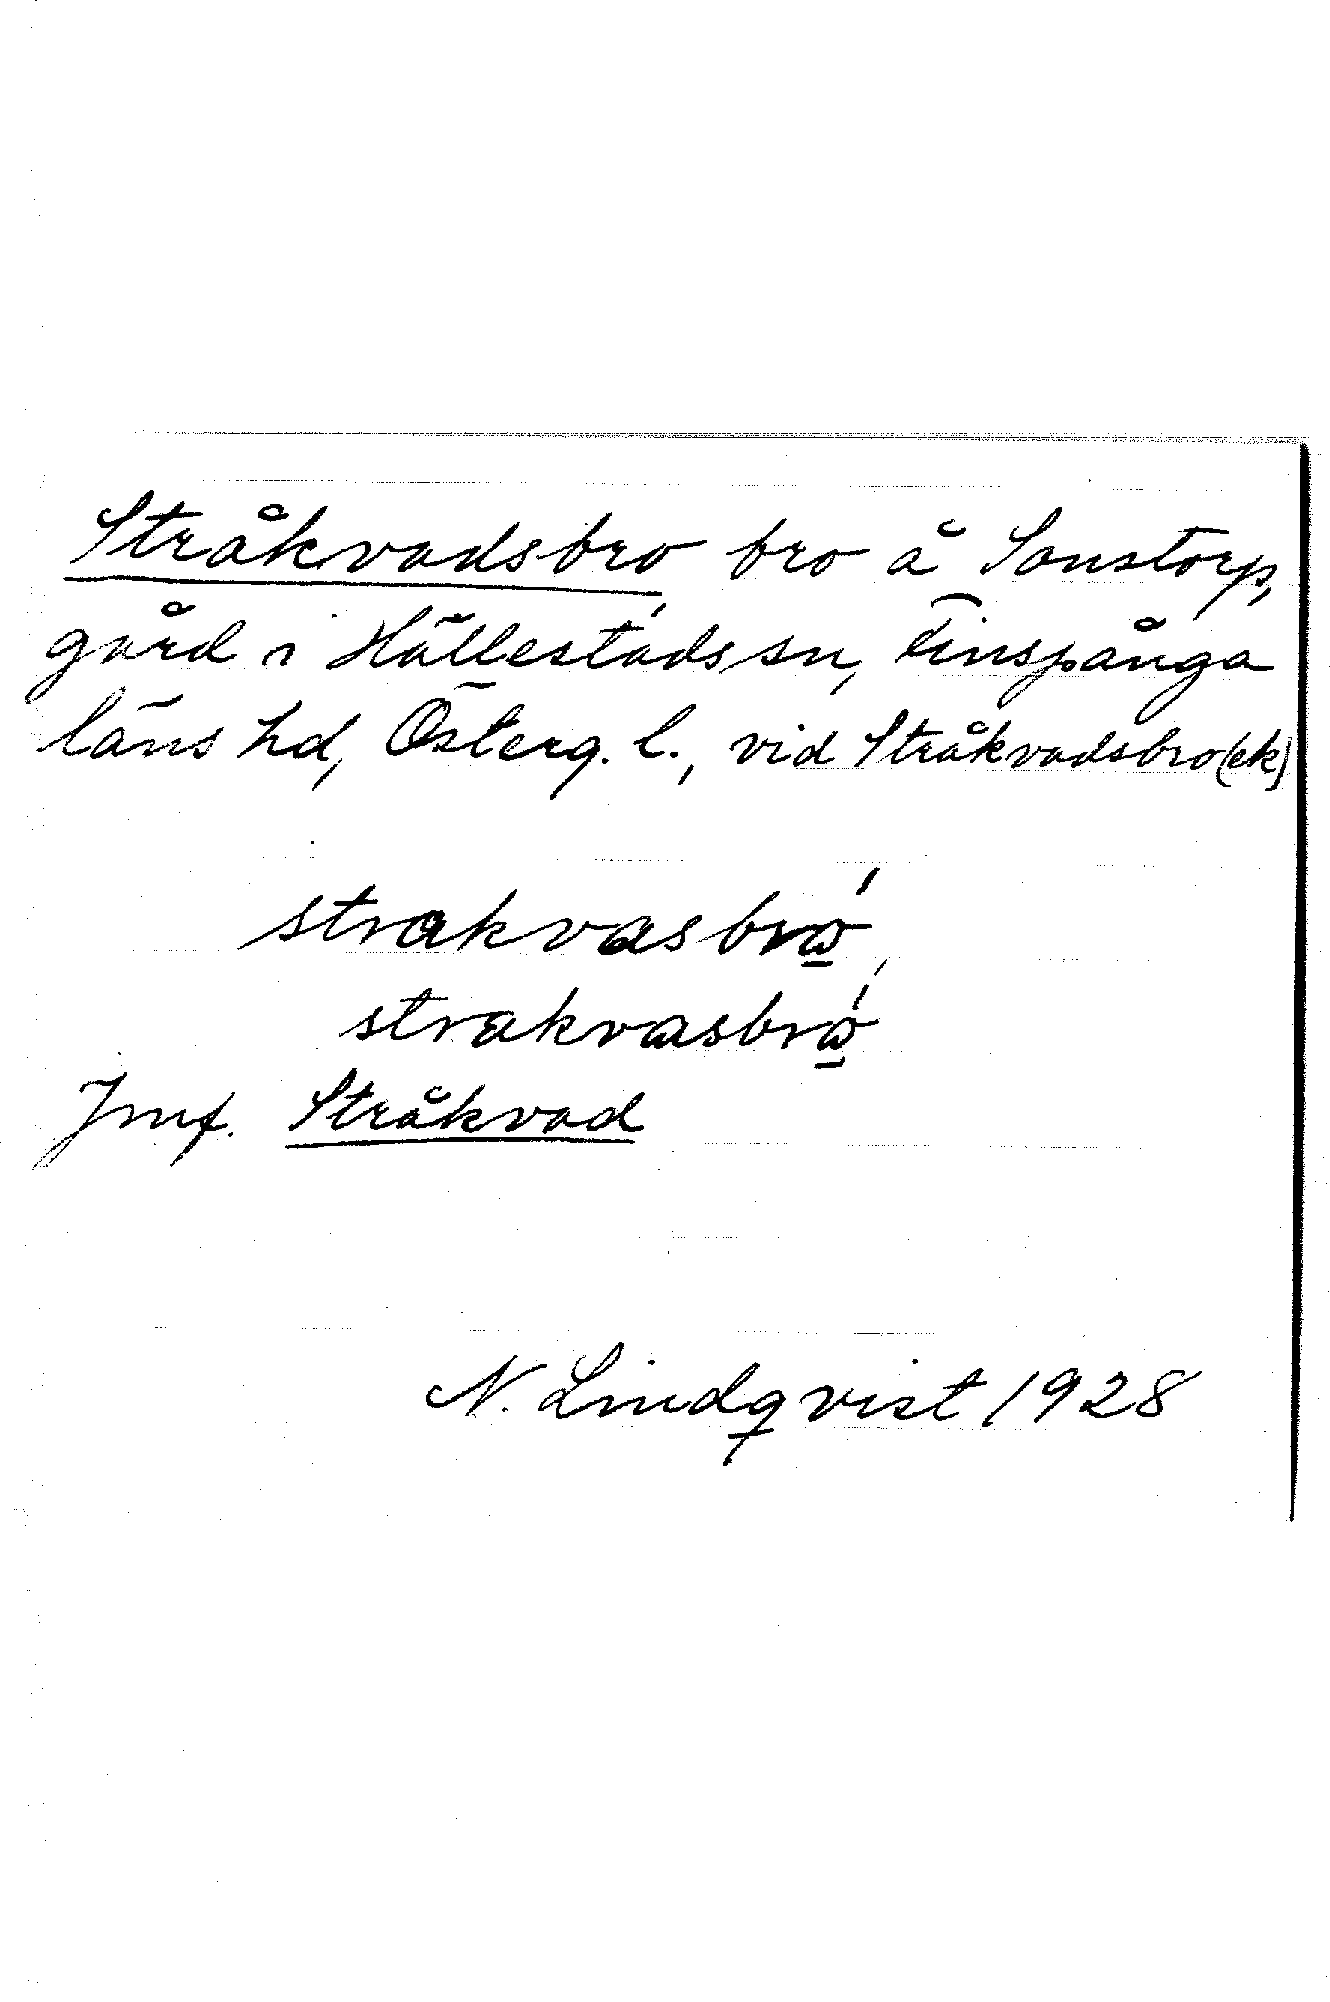 Stråkvadsbro bro å Sonstorp,
gård i Hällestads sn, Finspånga
läns hd, Österg. l., vid Stråkvadsbro(ek)
strakvasbrώ,
strakvasbrώ
Jmf. Stråkvad
N. Lindqvist 1928